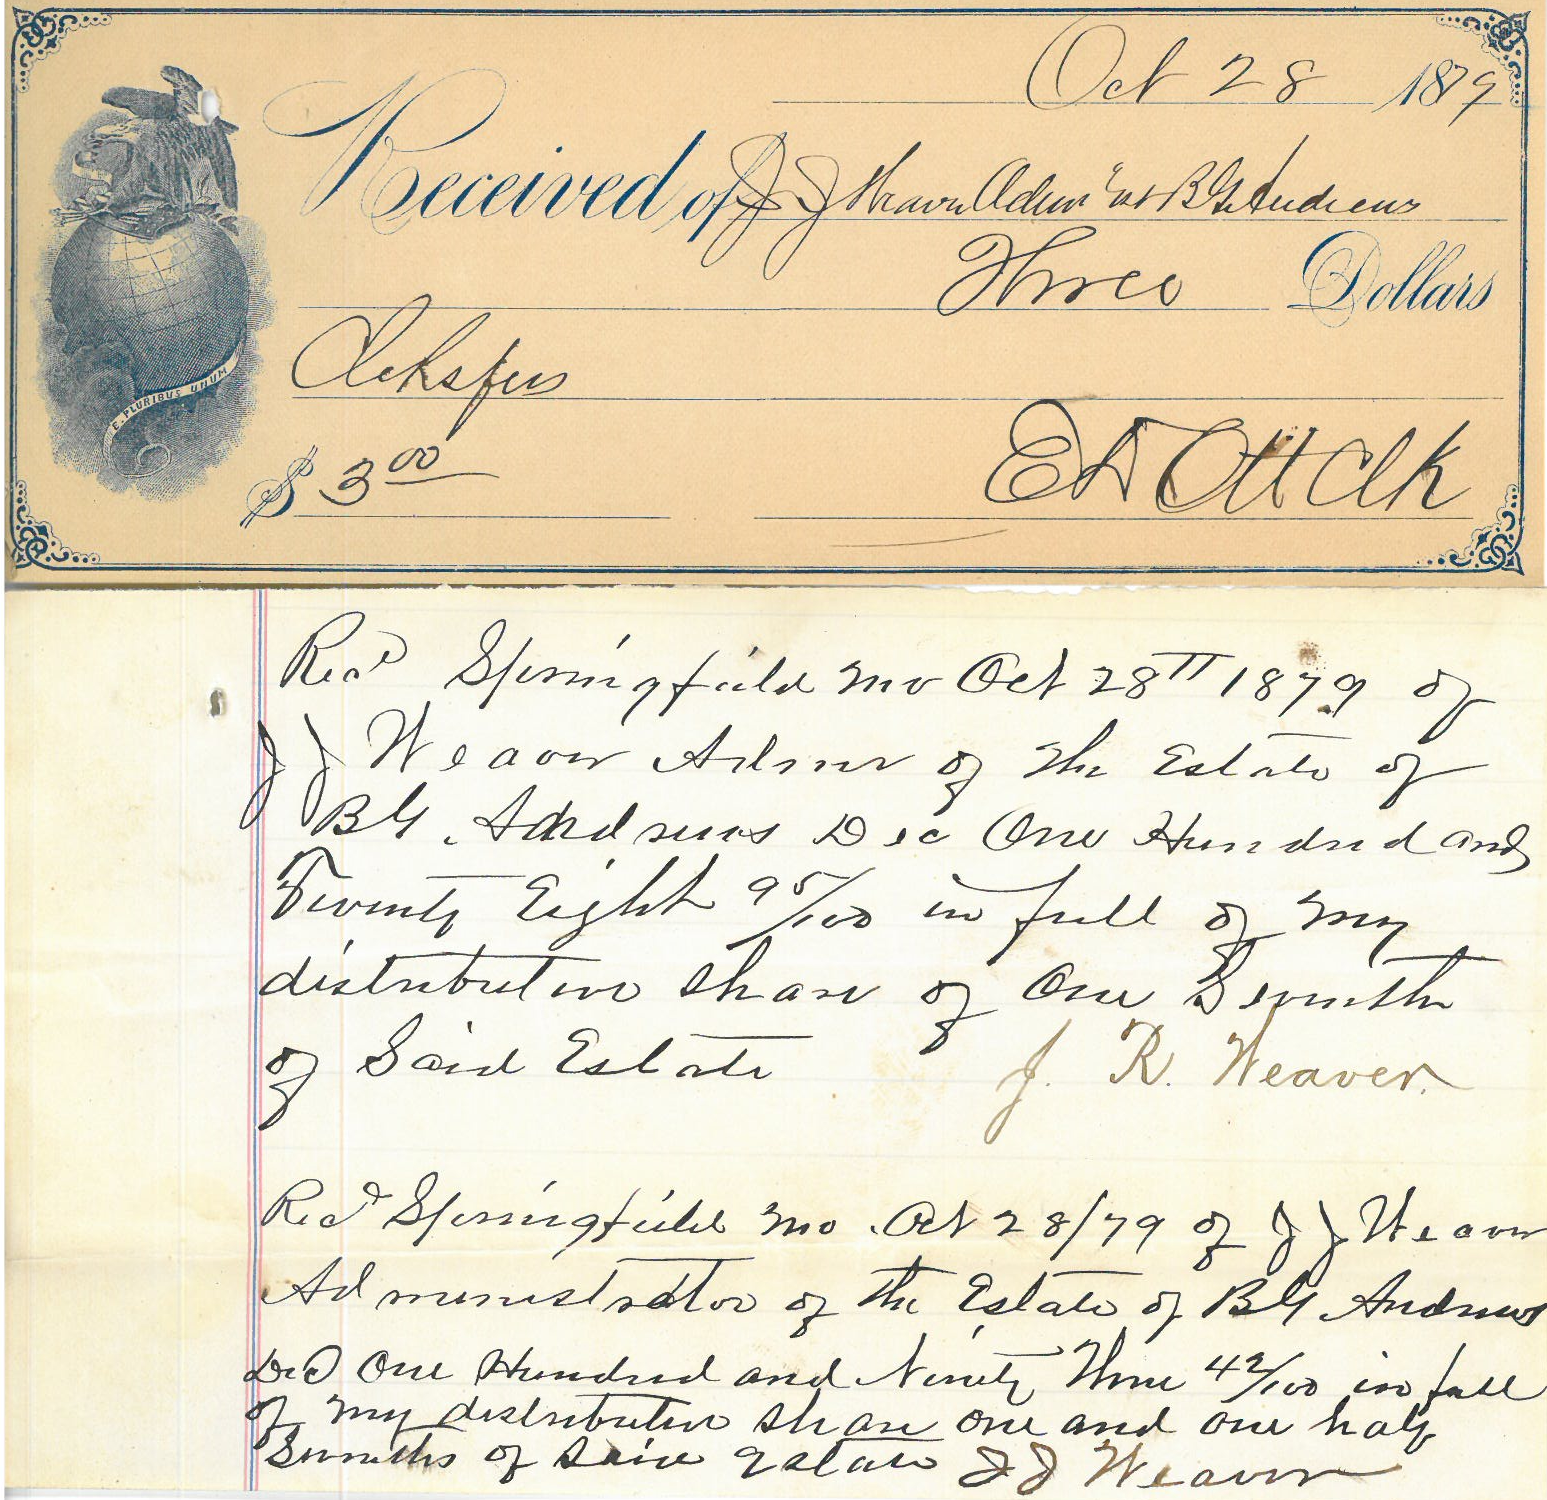 Oct 28 1879
Received of J J Weaver Admr Est B G Andrews
Three Dollars
Clks fees
E. PLURIBUS UNUM
$ 3 00
E D Ott Clk
Recd Springfield Mo Oct 28TH 1879 of
J J Weaver Admr of the Estate of
B G Andrews Dec One Hundred and
Twenty Eight 95/100 in full of my
distributive share of One Seventh
of Said Estate J. R. Weaver.
Recd Springfield Mo. Oct 28/79 of J J Weaver
Administrator of the Estate of B G Andrews
Decd One Hundred and Ninety Three 42/100 in full
of my distributive share one and one half
Sevenths of Said Estate J J Weaver